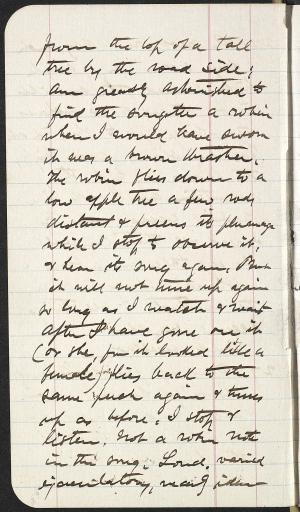 from the top of a tall
tree by the road side;
am greatly astonished to
find the songster a robin
when I would have sworn
it was a brown thrasher.
The robin flies down to a
low apple tree a few rods
distant & preens its plumage
while I stop to observe it,
& hear its song again. But
it will not tune up again
so long as I watch & wait
After I have gone on it
(or she, for it looked like a
female) flies back to the
same perch again & tunes
up as before. I stop &
listen. Not a robin note
in the song. Loud, varied
ejaculatory, nearly iden